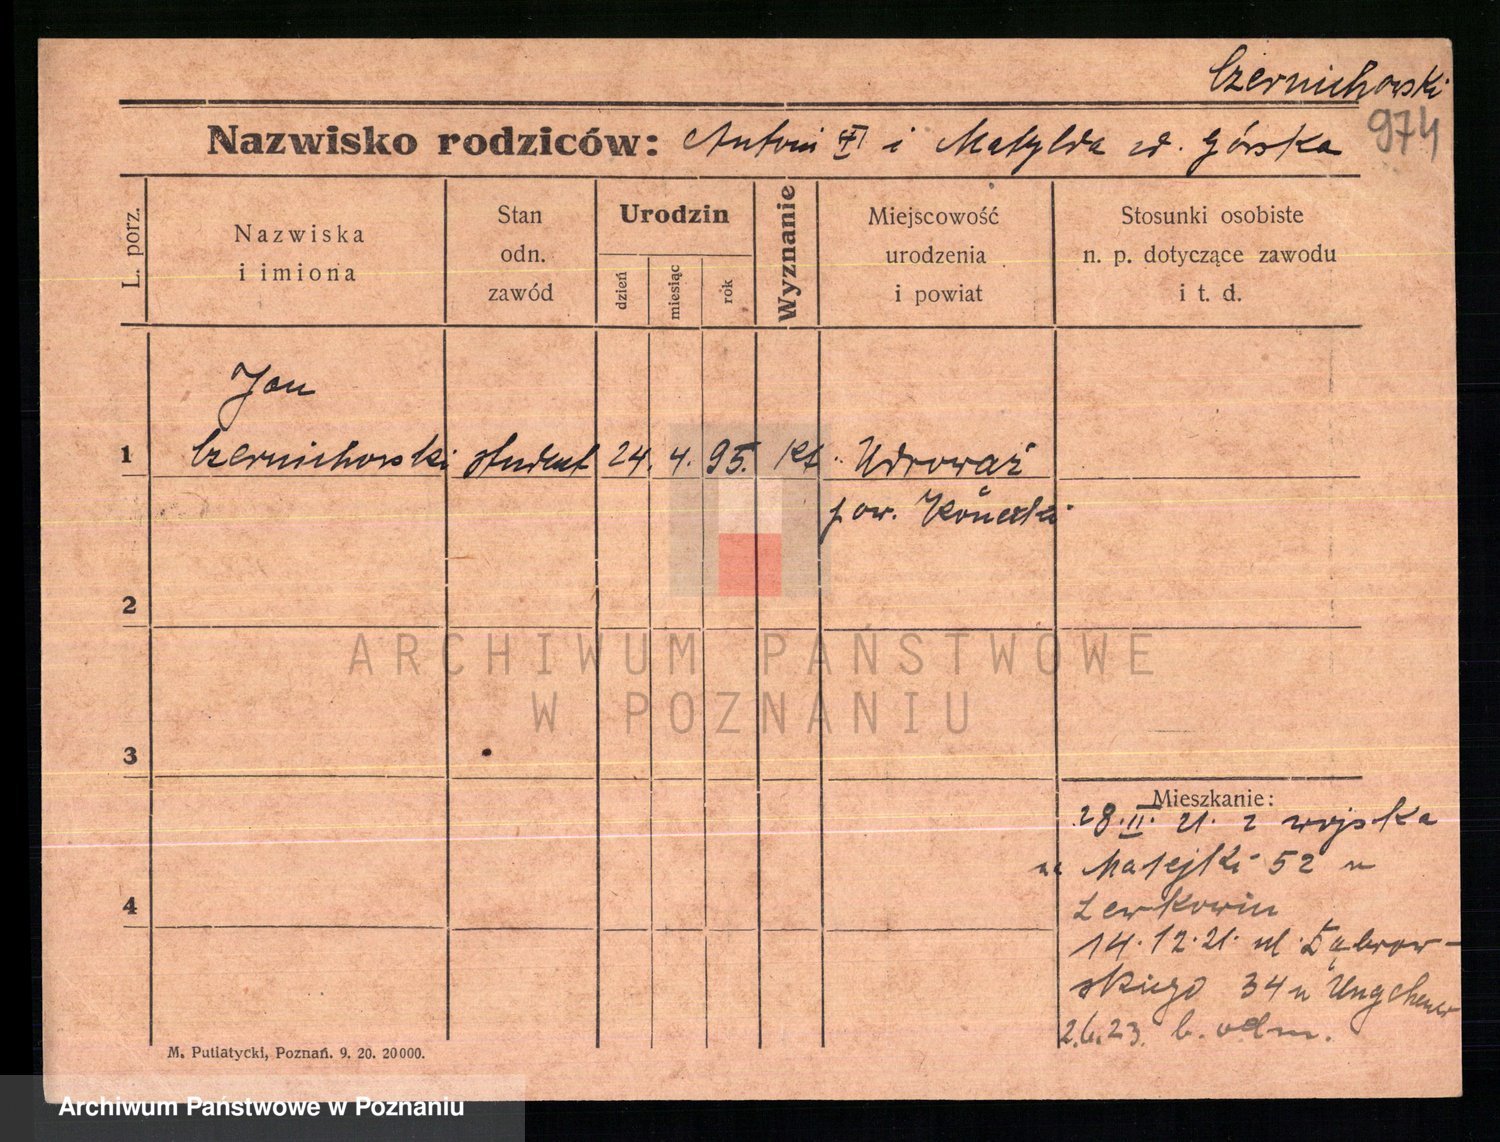 Czernichowski
974
Nazwisko rodziców: Antoni i Matylda zd. Górska
L. porz.
Nazwiska
i imiona
Stan
odn.
zawód
Urodzin
dzień
miesiąc
rok
Wyznanie
Miejscowość
urodzenia
i powiat
Stosunki osobiste
n. p. dotyczące zawodu
i t. d.
Jan
1 Czernichowski student 24. 4. 95. kt. Odrowąż
pow. Konecki
2
ARCHIWUM PAŃSTWOWE
W POZNANIU
3
Mieszkanie:
28. II. 21. z wojska
na Matejki 52 u
4
14.12.21. ul. Dąbrow-
skiego 34 u
2.6.23. b. odm.
M. Putiatycki, Poznań. 9. 20. 20000.
Archiwum Państwowe w Poznaniu